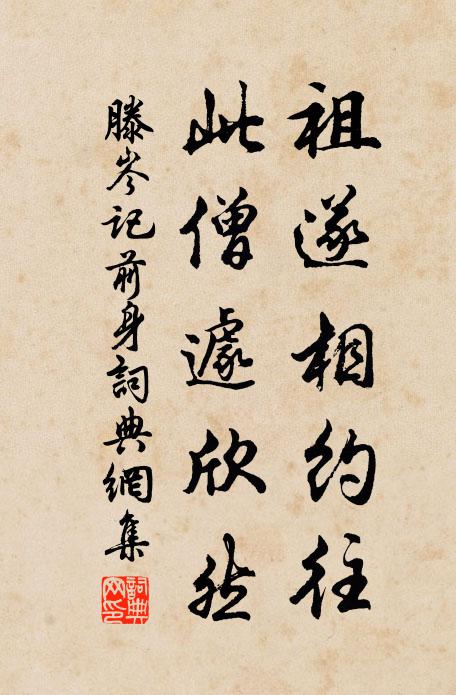 祖遂相約往
此僧遽欣然
滕岑記前身詞典網集
詞典網印